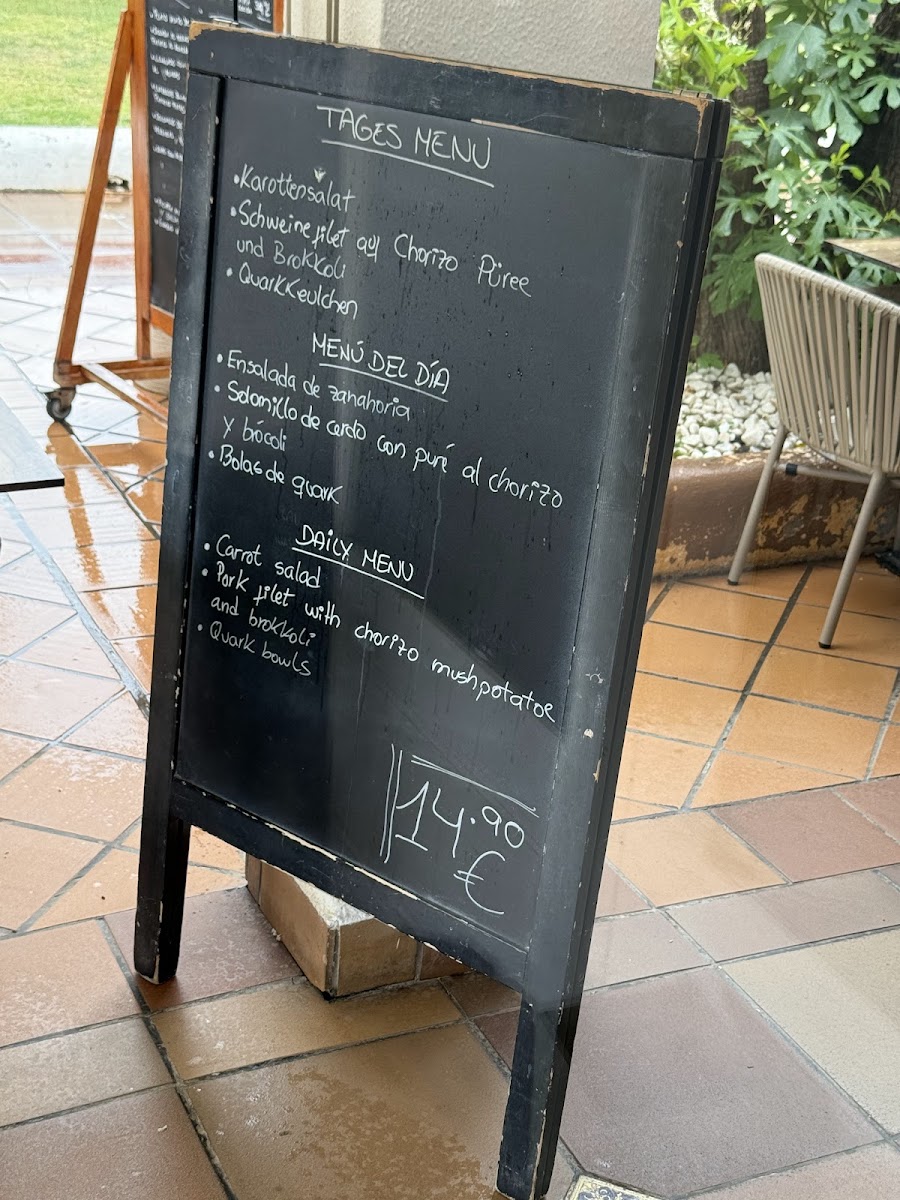 TAGES MENU
•Karottensalat
•Schweinefilet auf Chorizo Püree
und Brokkoli
•Quarkkeulchen
MENÚ DEL DÍA
•Ensalada de zanahoria
•Solomillo de cerdo con puré al chorizo
y brócoli
•Bolas de quark
DAILY MENU
•Carrot salad
•Pork filet with chorizo mushpotatoe
and brokkoli
•Quark bowls
14.90
€